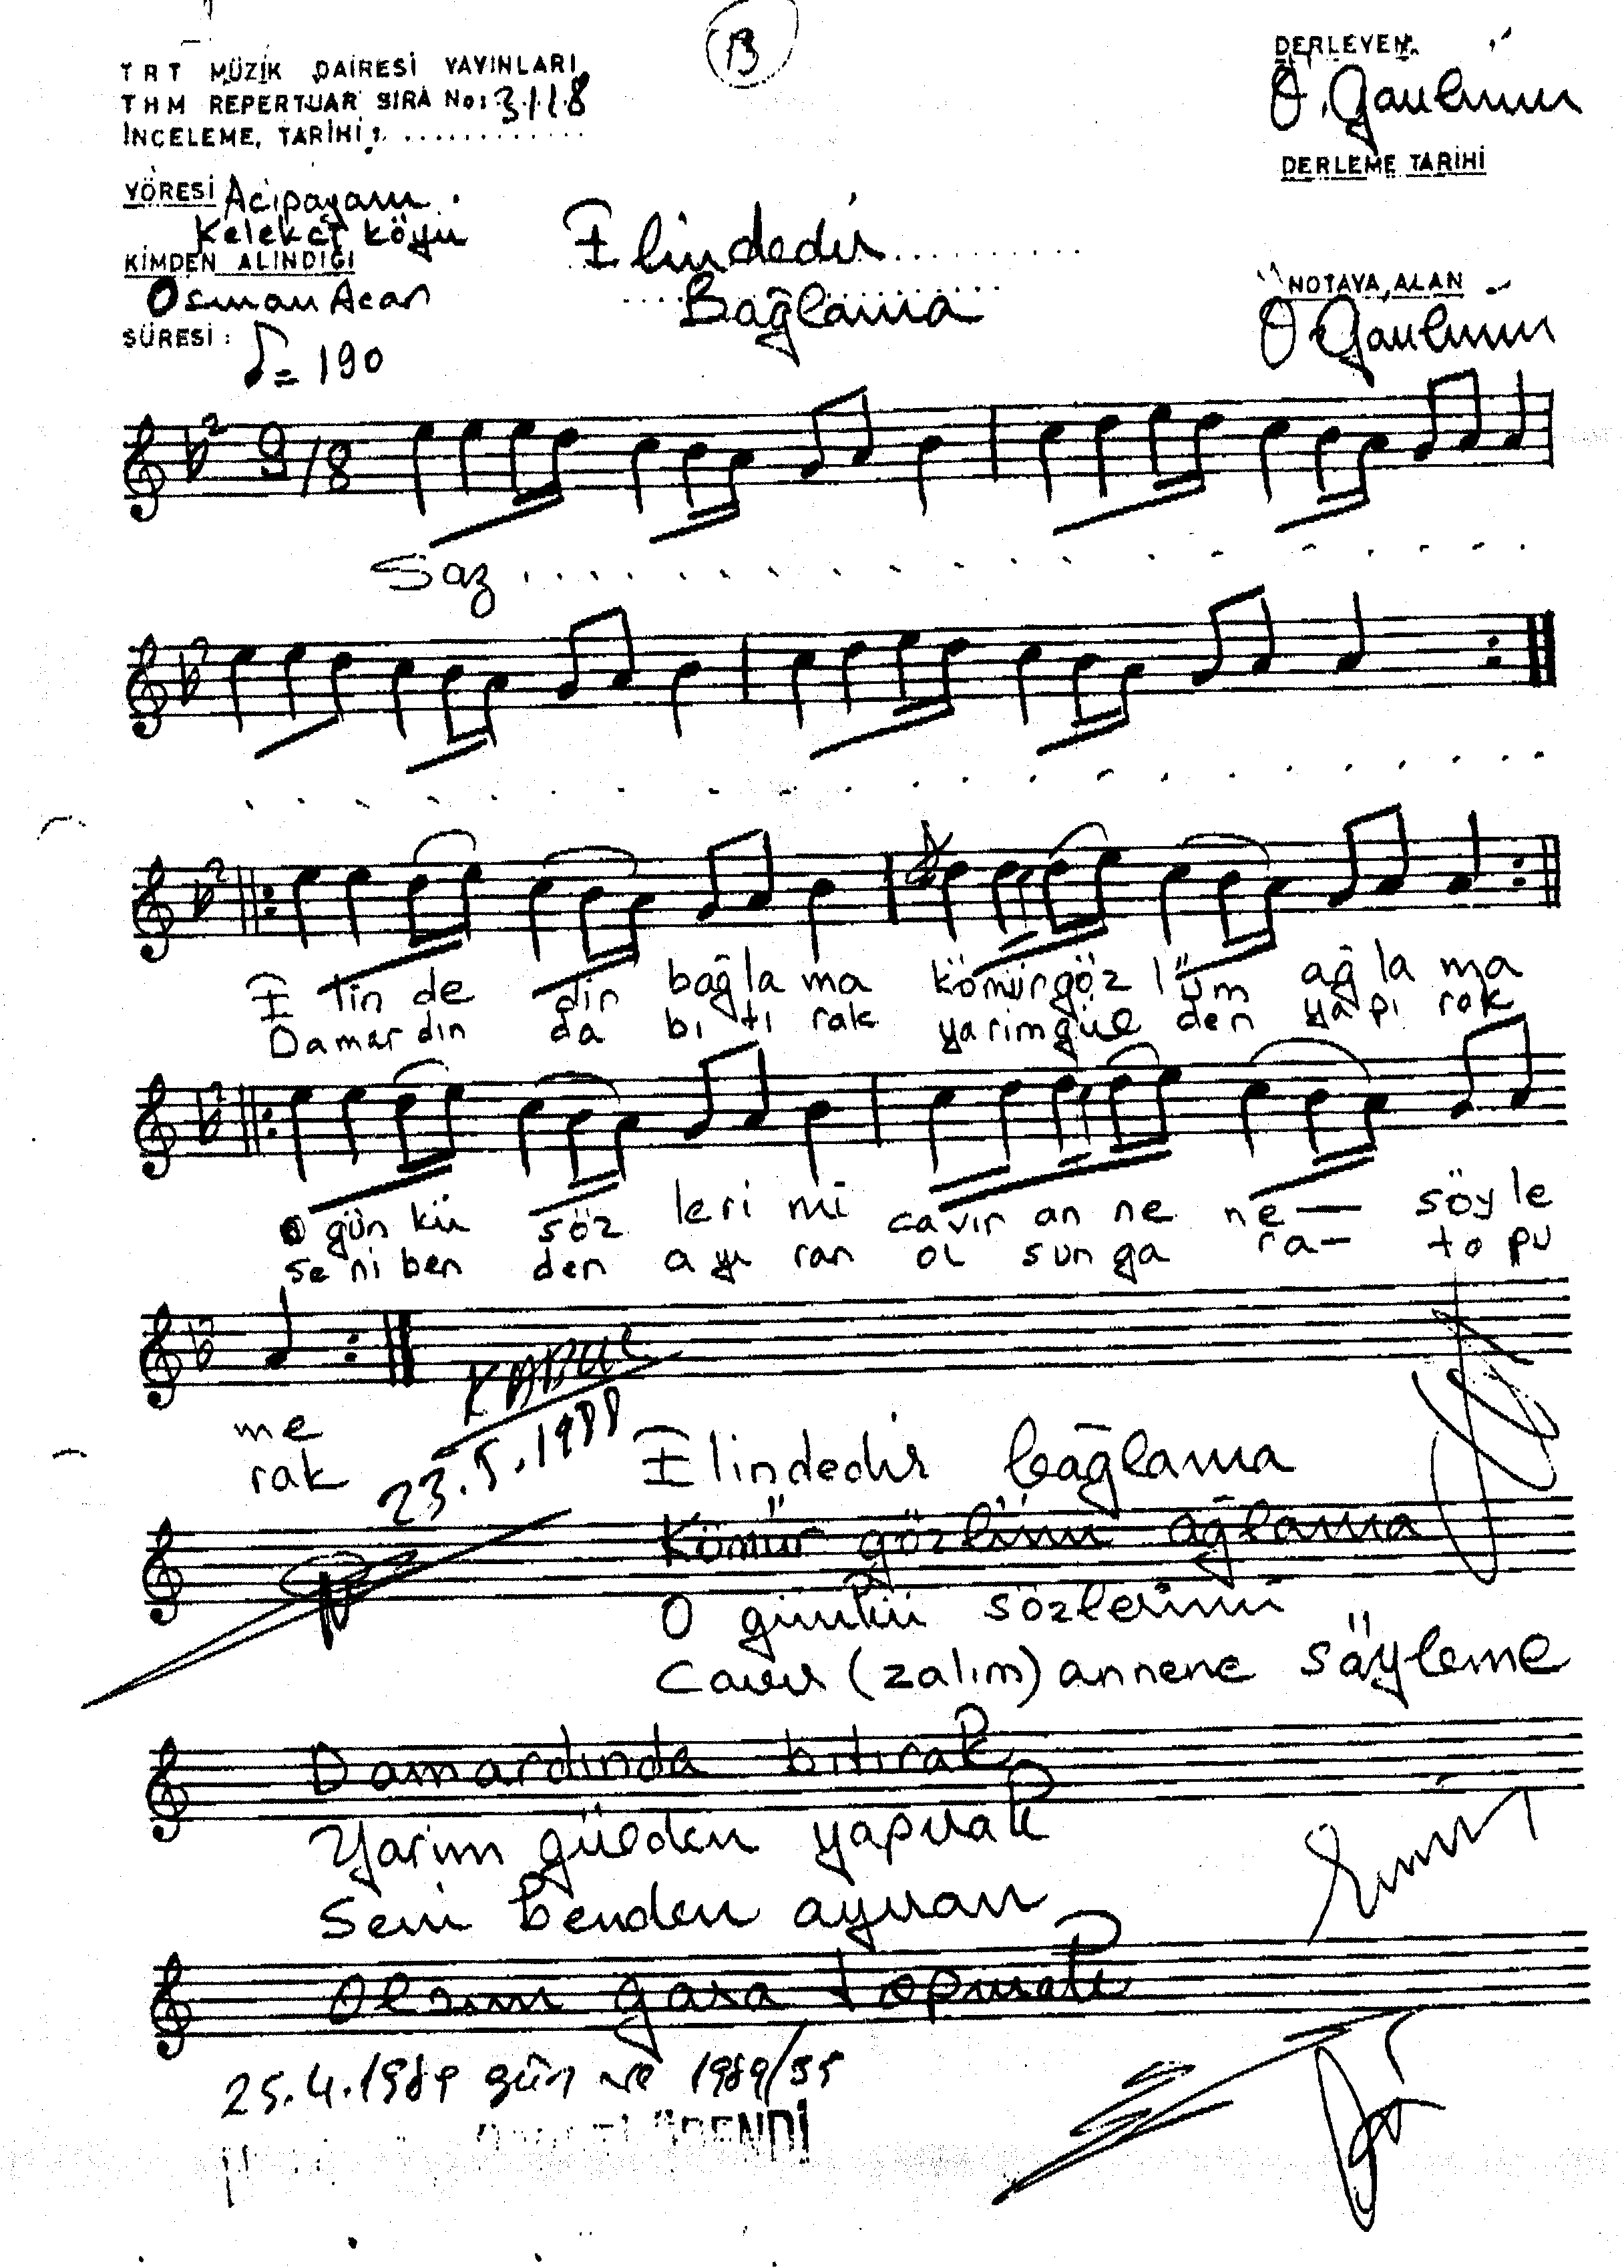 B
TRT MÜZİK DAİRESİ YAYINLARI
THM REPERTUAR SIRA No: 3118
İNCELEME TARİHİ: ............
YÖRESİ Acıpayam
Kelekçi köyü
KİMDEN ALINDIĞI
Osman Acar
SÜRESİ:
♪ = 190
DERLEYEN
DERLEME TARİHİ
NOTAYA ALAN
Elindedir
Bağlama
2
9/8
Saz
E lin de dir bağ la ma kömür göz lüm ağ la ma
Damar dın da bı tı rak yarim gül den ya pı rak
O gün kü söz leri mi cavır an ne ne — söy le
se ni ben den a yı ran ol sun ga ra — to pu
me
rak
KABUL
23.5.1988
Elindedir bağlama
Kömür gözlüm ağlama
O günkü sözlerimi
Cavır (zalım) annene söyleme
Damardında bıtırak
Yarim gülden yapırak
Seni benden ayıran
Olsun gara topurak
25.4.1989 gün ve 1989/35
ÖDENDİ